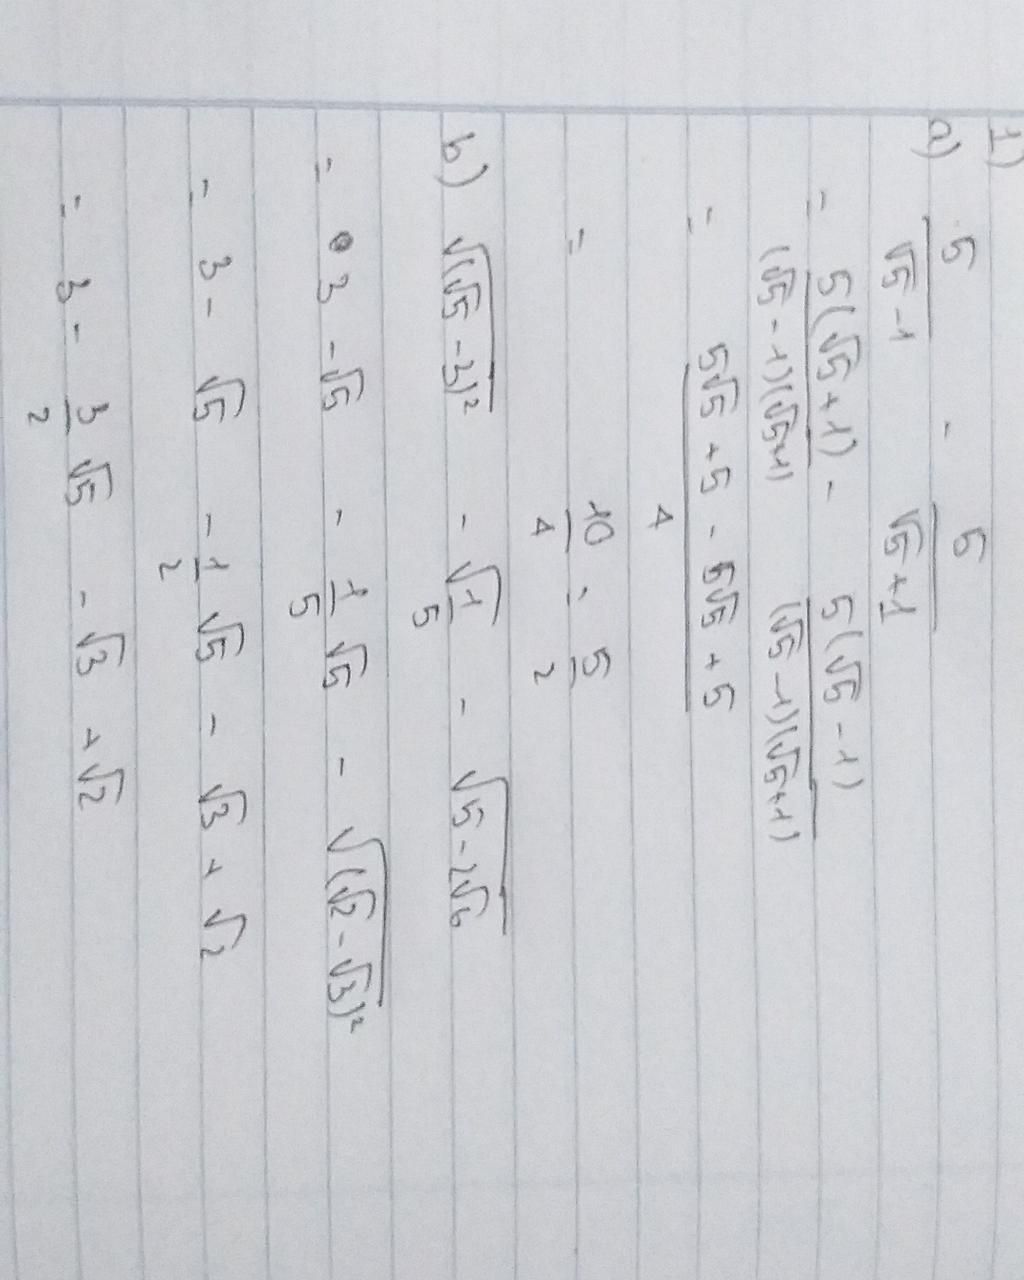 1)
a) 5/(√5 - 1) - 5/(√5 + 1)
= 5(√5 + 1)/((√5 - 1)(√5+1) - 5(√5 - 1)/((√5 - 1)(√5+1)
= (5√5 + 5 - 5√5 + 5)/4
= 10/4 = 5/2
b) √((√5 - 3)²) - √(1/5) - √(5 - 2√6)
= 3 - √5 - 1/5 √5 - √((√2 - √3)²)
= 3 - √5 - 1/2 √5 - √3 + √2
= 3 - 3/2 √5 - √3 + √2